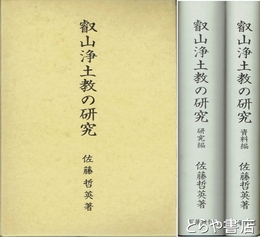 叡山浄土教の研究
佐藤哲英著
叡山浄土教の研究
研究編
佐藤哲英著
叡山浄土教の研究
資料編
佐藤哲英著
とらや書店